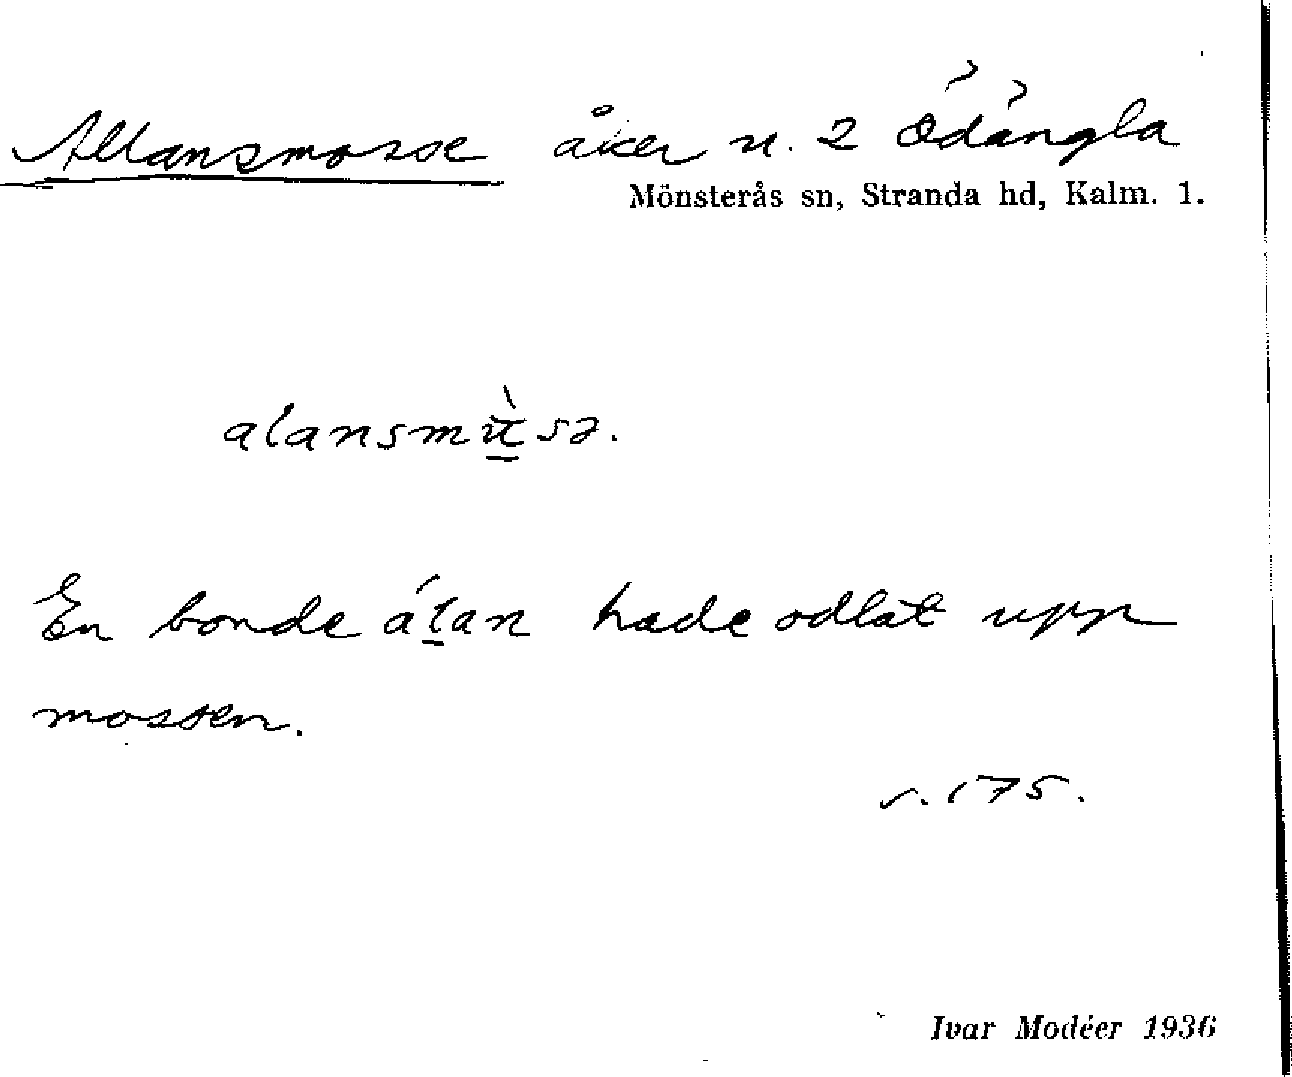 Allansmosse åker n. 2 Ödängla
Mönsterås sn, Stranda hd, Kalm. 1.
En bonde álan hade odlat upp
mossen.
s. 175.
Ivar Modéer 1936